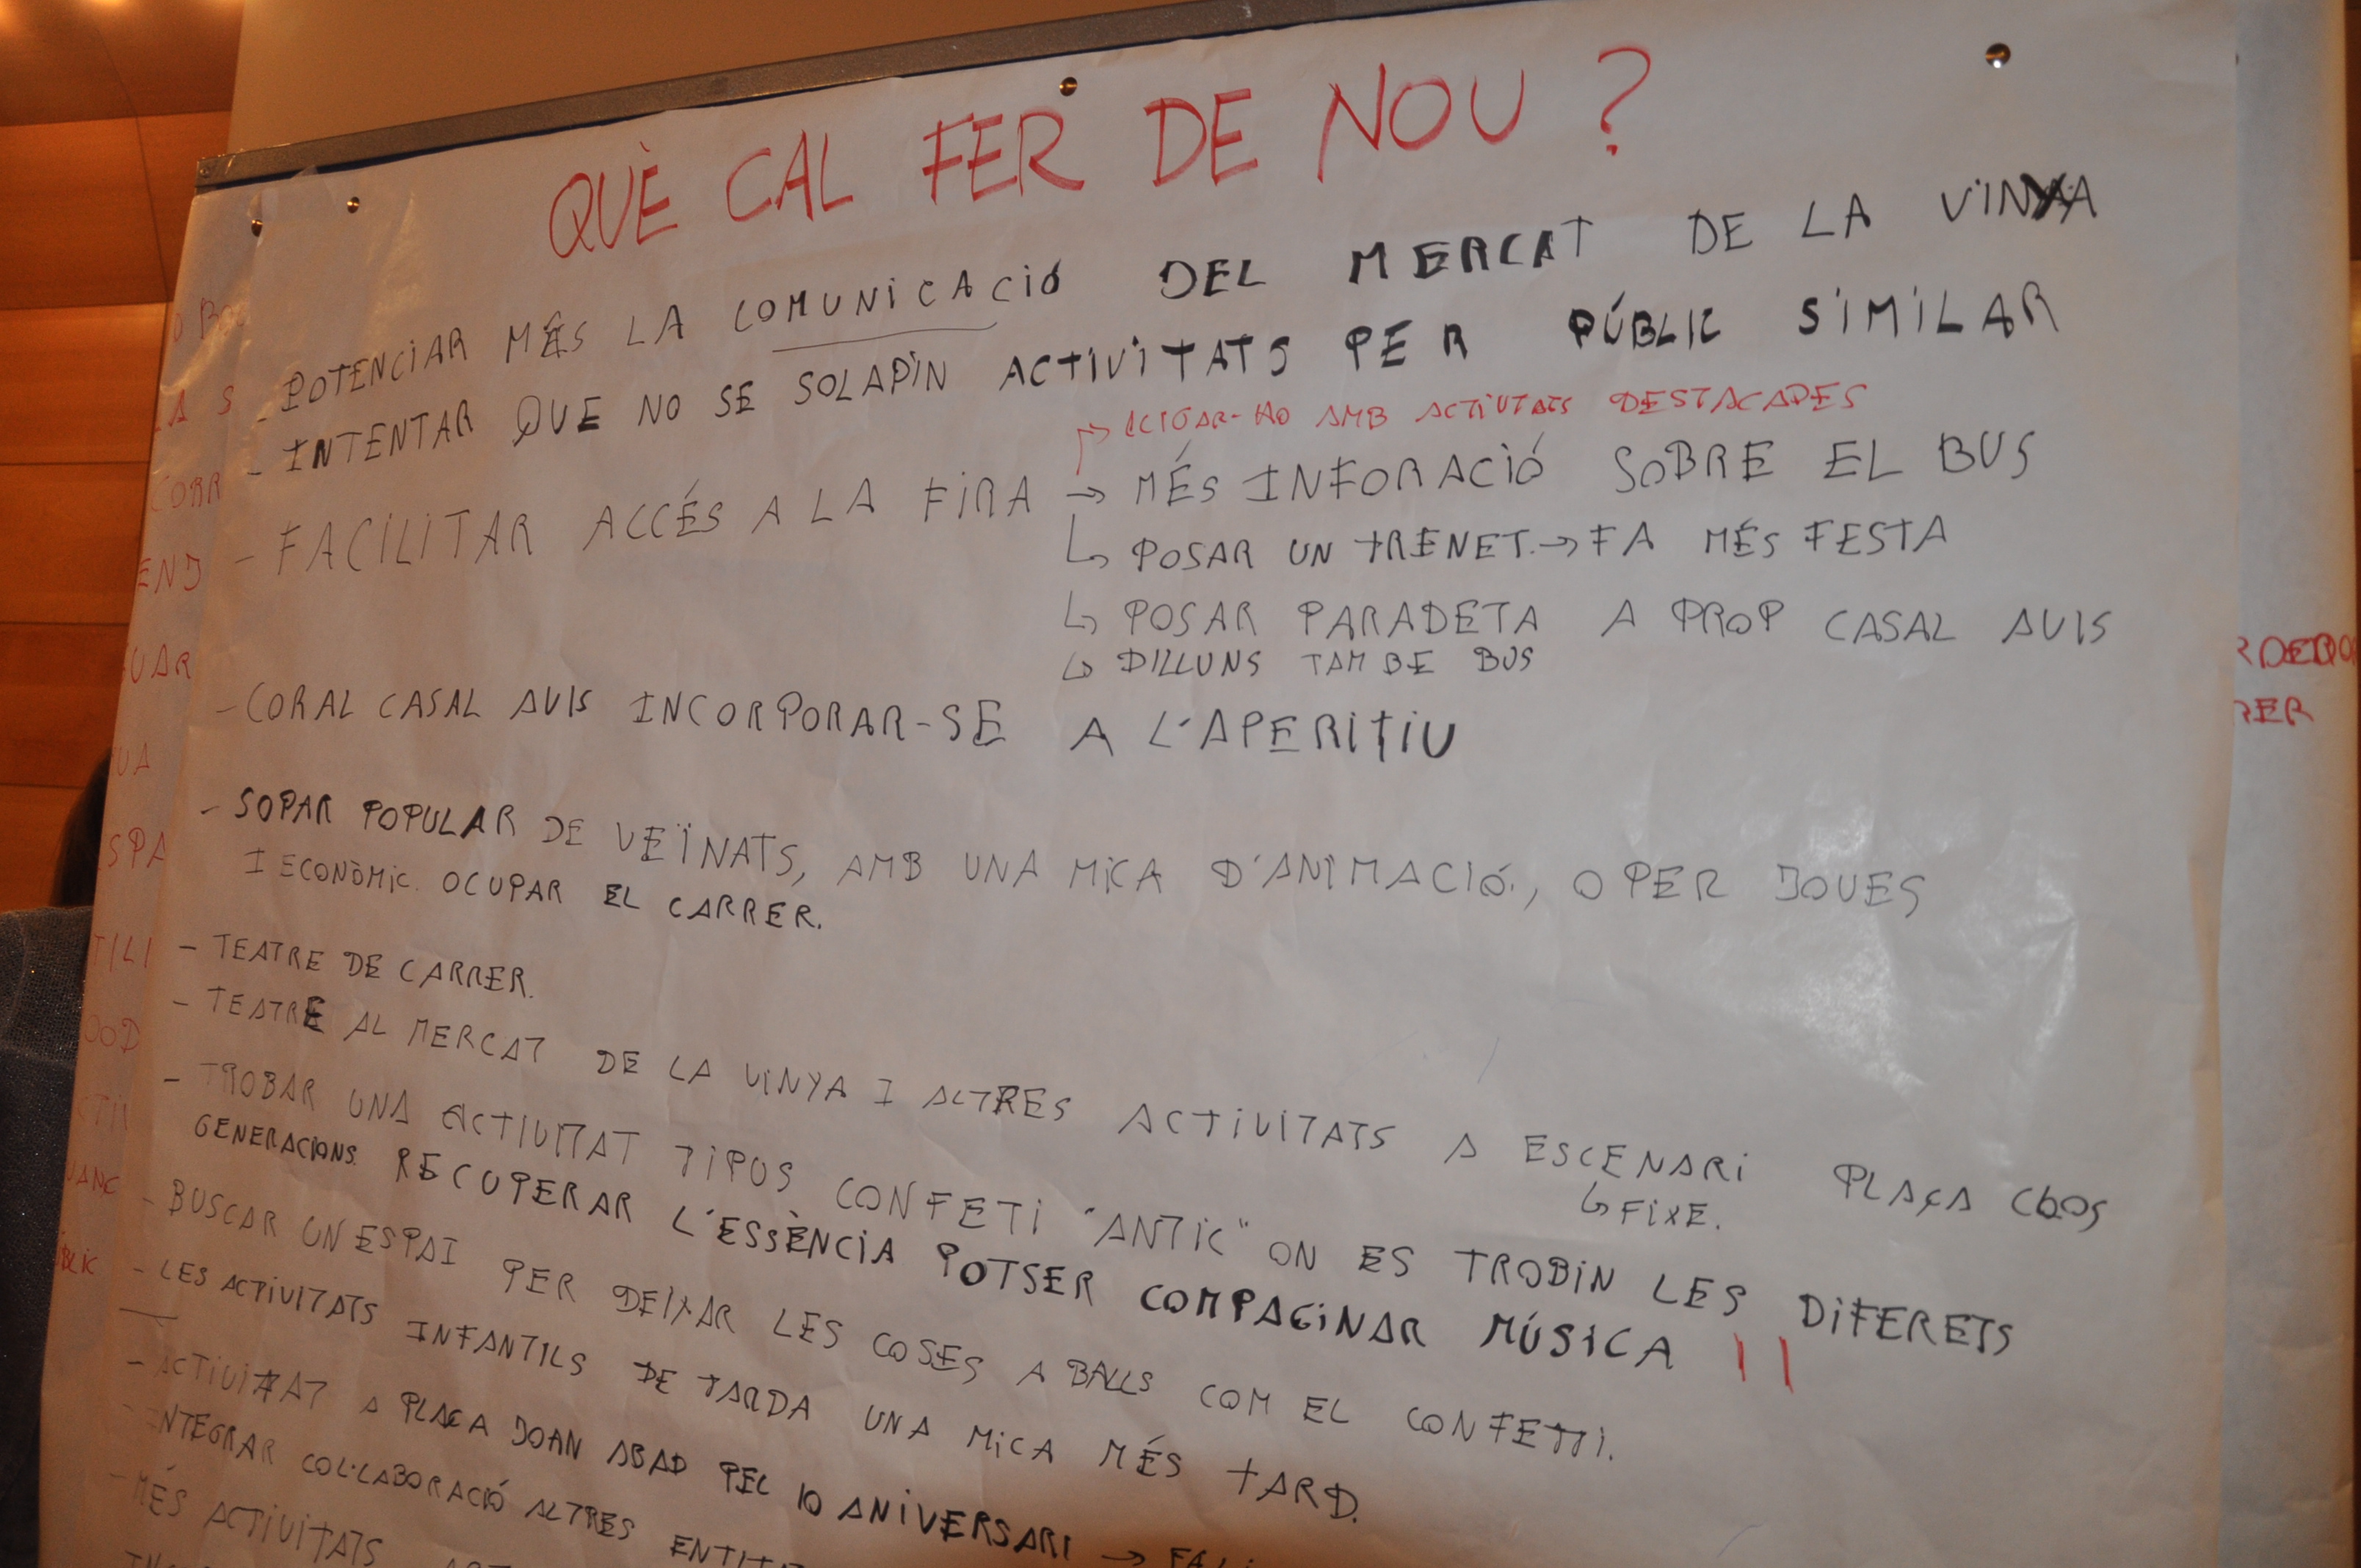 QUÈ CAL FER DE NOU ?
- POTENCIAR MÉS LA COMUNICACIÓ DEL MERCAT DE LA VINYA
- INTENTAR QUE NO SE SOLAPIN ACTIVITATS PER PÚBLIC SIMILAR
AMB ACTIVITATS DESTACADES
- FACILITAR ACCÉS A LA FIRA → MÉS INFORACIÓ SOBRE EL BUS
↳ POSAR UN TRENET. → FA MÉS FESTA
↳ POSAR PARADETA A PROP CASAL AVIS
↳ DILLUNS TAMBE BUS
- CORAL CASAL AVIS INCORPORAR-SE A L'APERITIU
- SOPAR POPULAR DE VEÏNATS, AMB UNA MICA D'ANIMACIÓ., O PER JOVES
I ECONÒMIC. OCUPAR EL CARRER.
- TEATRE DE CARRER.
- TEATRE AL MERCAT DE LA VINYA I ALTRES ACTIVITATS A ESCENARI PLAÇA CLOS
↳ FIXE.
- TROBAR UNA ACTIVITAT TIPUS CONFETI "ANTIC" ON ES TROBIN LES DIFERETS
GENERACIONS. RECUPERAR L'ESSÈNCIA POTSER COMPAGINAR MÚSICA ||
- BUSCAR UN ESPAI PER DEIXAR LES COSES A BALLS COM EL CONFETTI.
- LES ACTIVITATS INFANTILS DE TARDA UNA MICA MÉS TARD.
- ACTIVITAT A PLAÇA JOAN ABAD PEL 10 ANIVERSARI →
- INTEGRAR COL·LABORACIÓ ALTRES
- MÉS ACTIVITATS